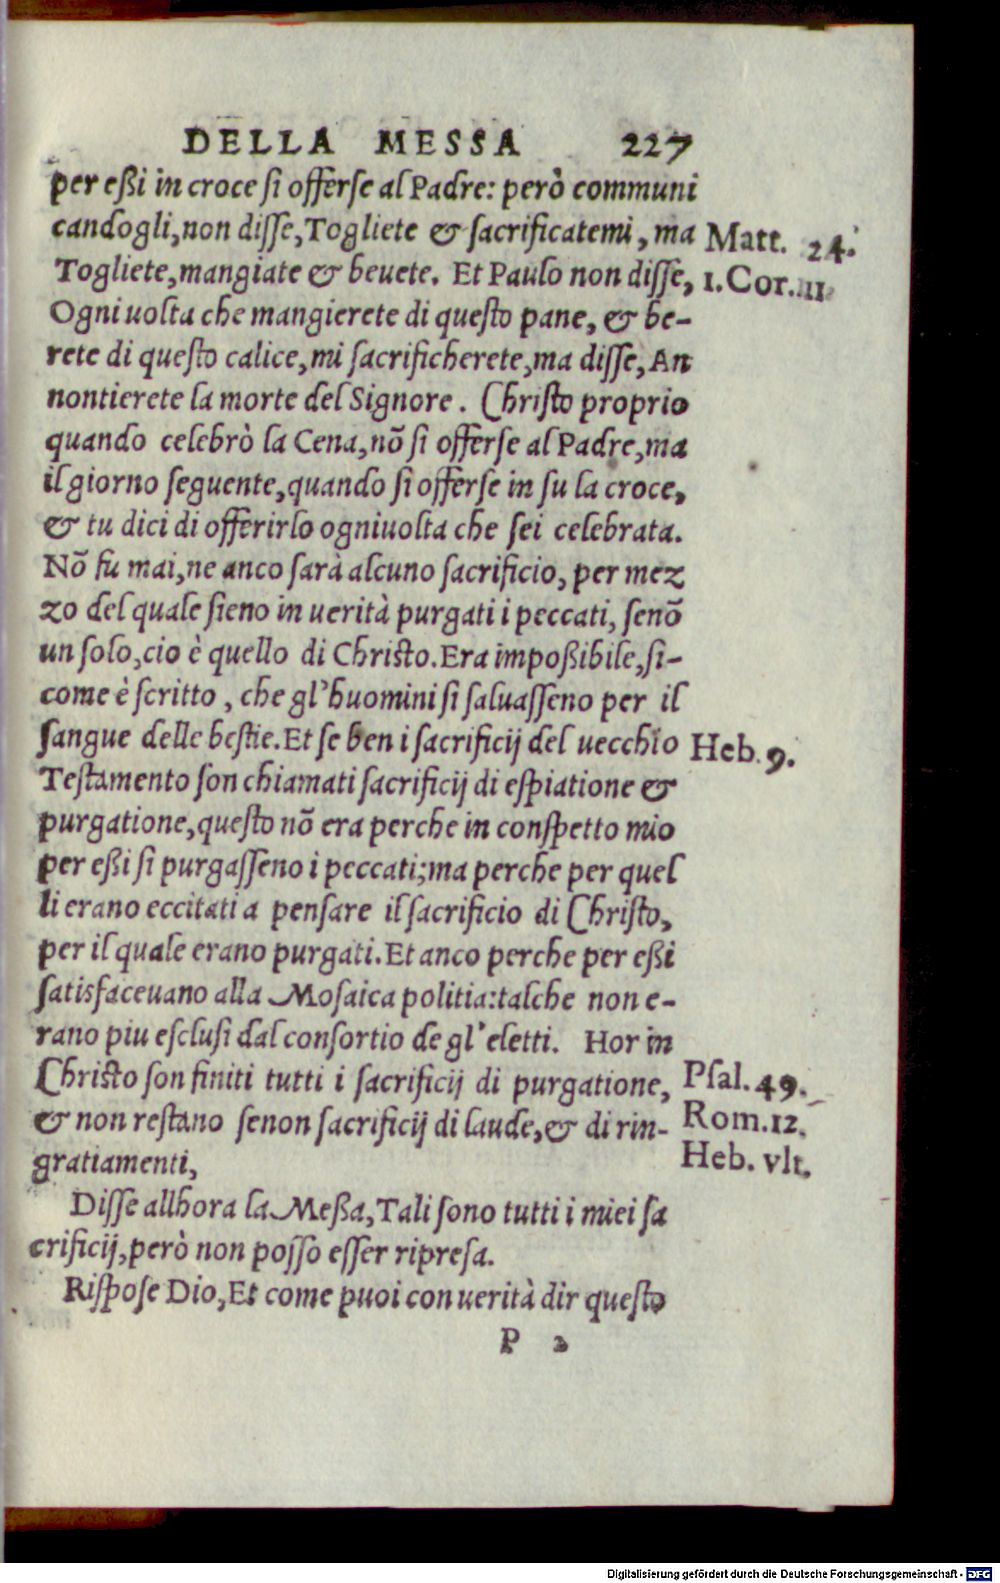 DELLA MESSA 227
per eßi in croce si offerse al Padre: però communi
candogli, non disse, Togliete & sacrificatemi, ma
Matt. 24.
Togliete, mangiate & beuete. Et Paulo non disse,
1. Cor. 11
Ogni uolta che mangierete di questo pane, & be-
rete di questo calice, mi sacrificherete, ma disse, An
nontierete la morte del Signore. Christo proprio
quando celebrò la Cena, nõ si offerse al Padre, ma
il giorno seguente, quando si offerse in su la croce,
& tu dici di offerirlo ogniuolta che sei celebrata.
Nõ fu mai, ne anco sarà alcuno sacrificio, per mez
zo del quale sieno in uerità purgati i peccati, senõ
un solo, cio è quello di Christo. Era impoßibile, si-
come è scritto, che gl'huomini si saluasseno per il
sangue delle bestie. Et se ben i sacrificij del uecchio
Heb. 9.
Testamento son chiamati sacrificij di espiatione &
purgatione, questo nõ era perche in conspetto mio
per eßi si purgasseno i peccati; ma perche per quel
li erano eccitati a pensare il sacrificio di Christo,
per il quale erano purgati. Et anco perche per eßi
satisfaceuano alla Mosaica politia: talche non e-
rano piu esclusi dal consortio de gl'eletti. Hor in
Christo son finiti tutti i sacrificij di purgatione,
Psal. 49.
& non restano senon sacrificij di laude, & di rin-
Rom. 12.
gratiamenti,
Heb. vlt.
Disse allhora la Meßa, Tali sono tutti i miei sa
crificij, però non posso esser ripresa.
Rispose Dio, Et come puoi con uerità dir questo
P 2
Digitalisierung gefördert durch die Deutsche Forschungsgemeinschaft - DFG